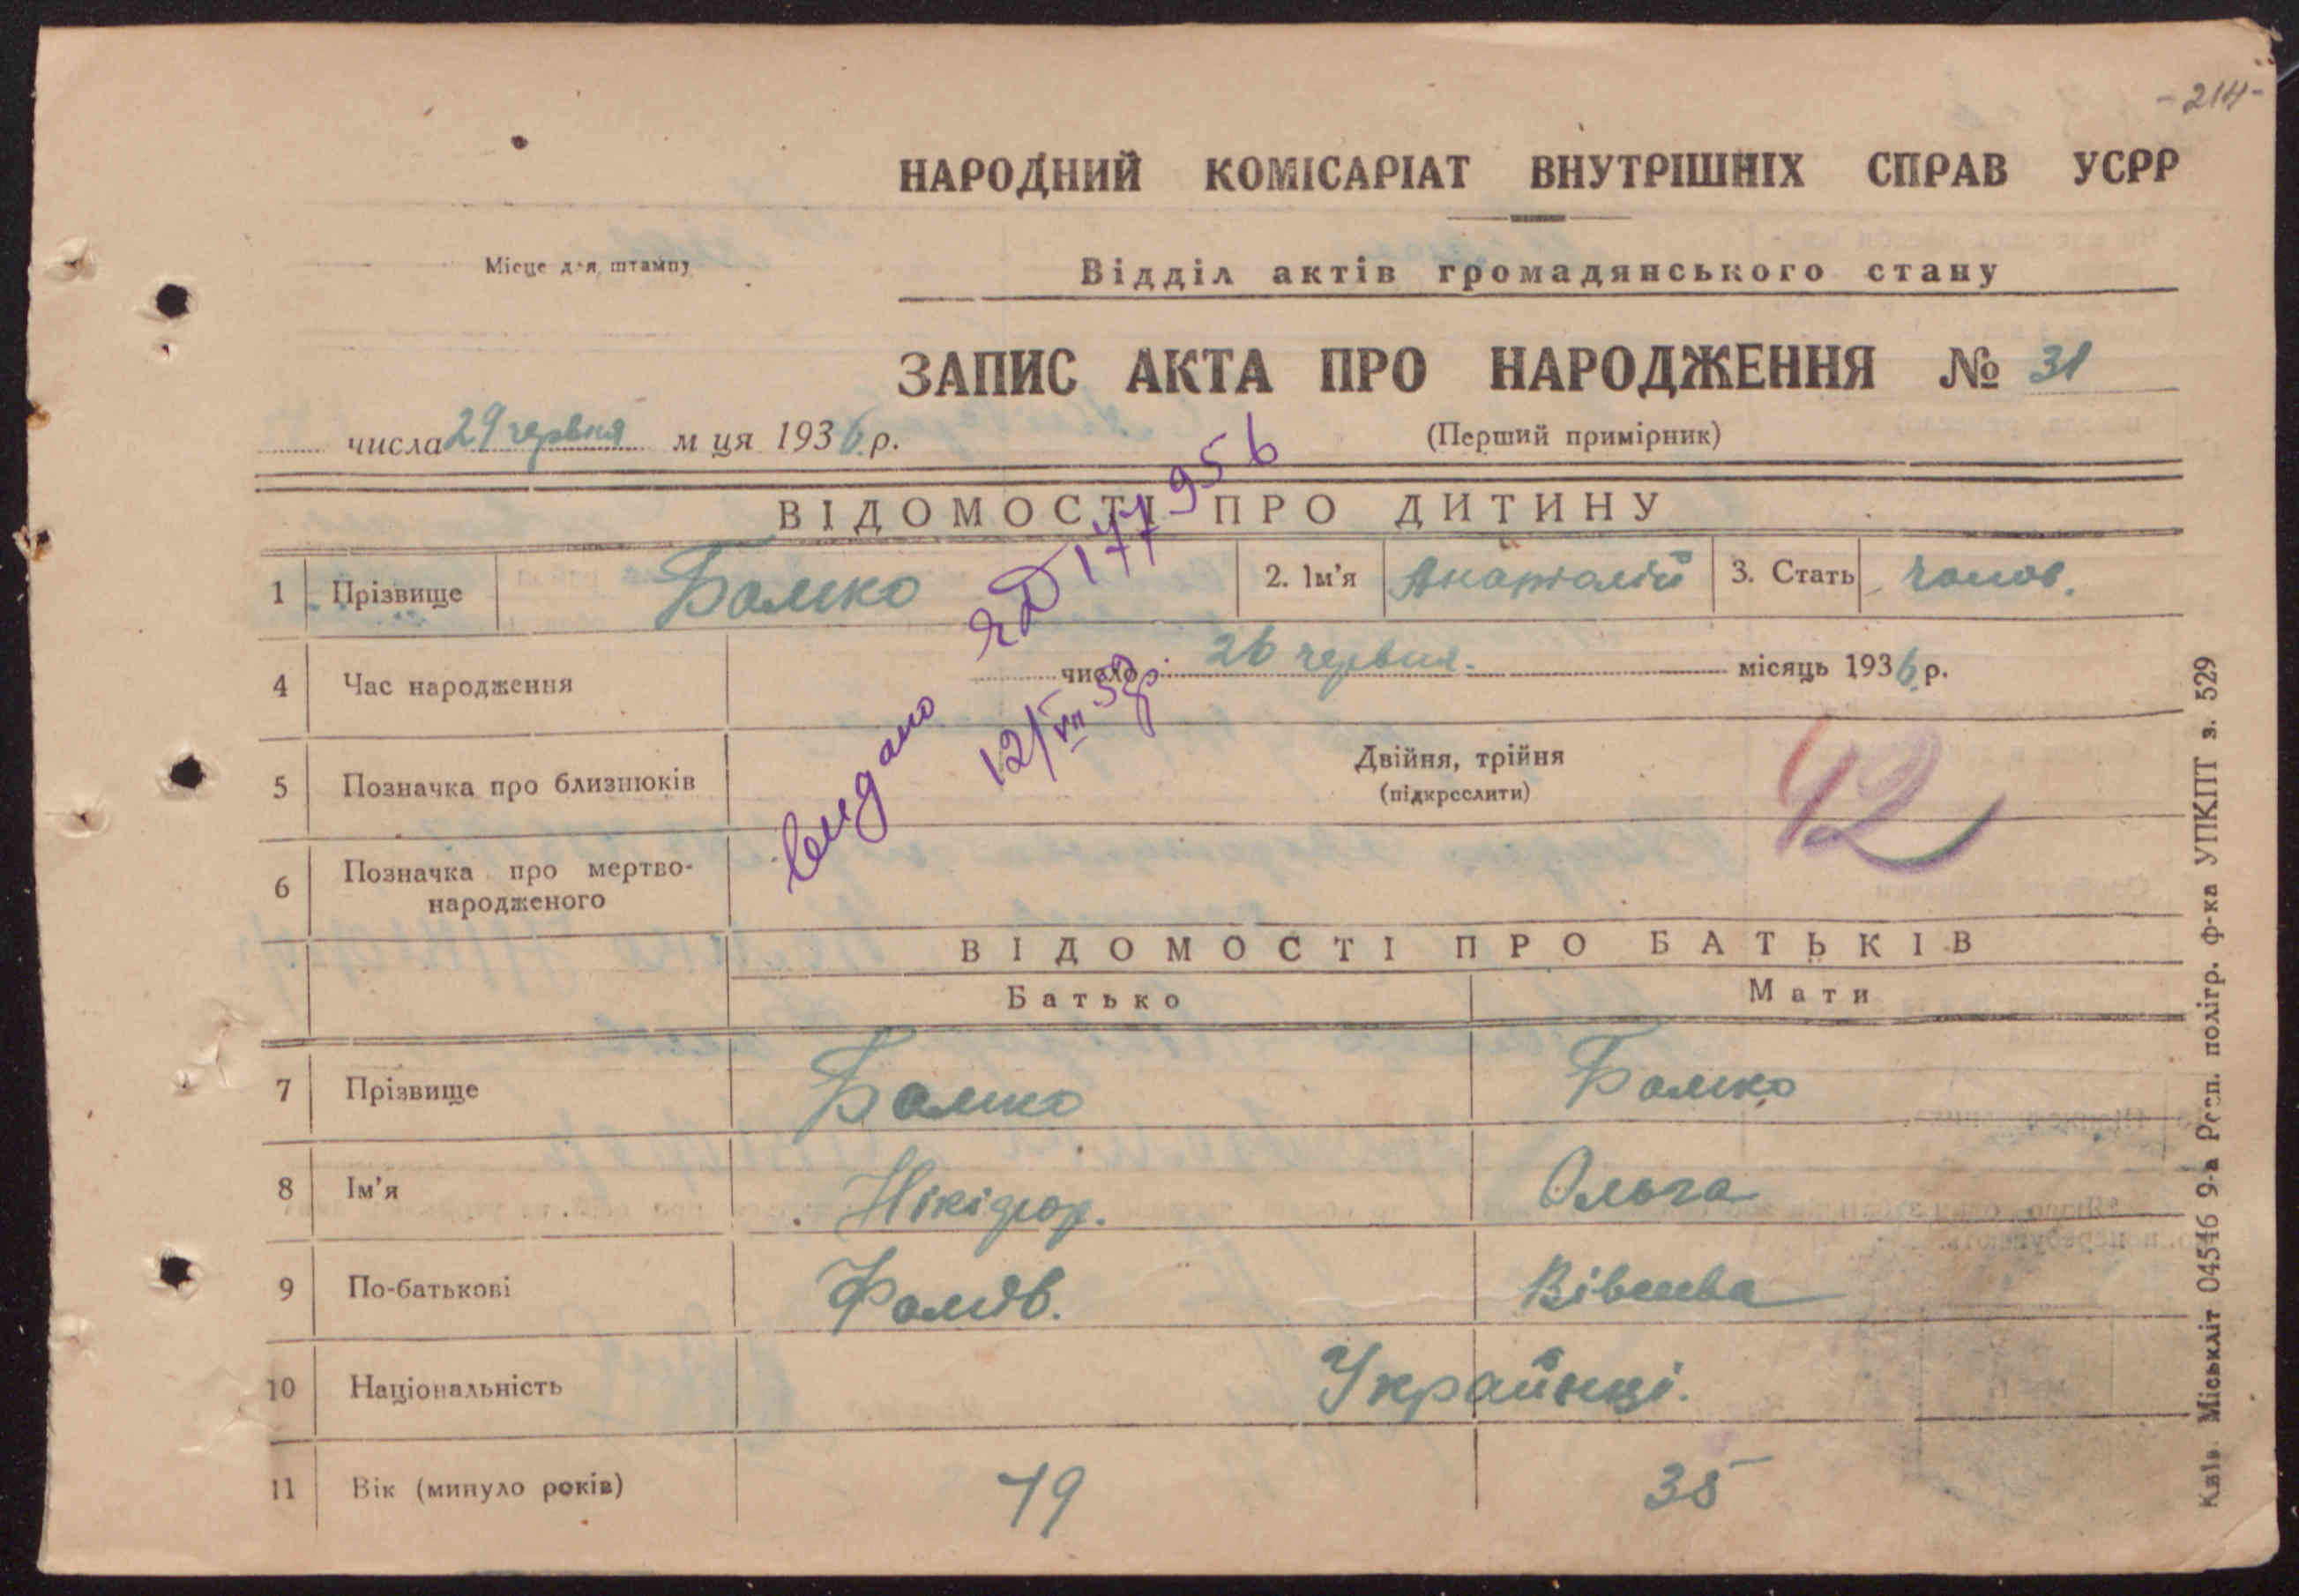 -214-
НАРОДНИЙ КОМІСАРІАТ ВНУТРІШНІХ СПРАВ УСРР
Місце для штампу
Відділ актів громадянського стану
ЗАПИС АКТА ПРО НАРОДЖЕННЯ № 31
числа 29 червня м ця 1936 р.
(Перший примірник)
ВІДОМОСТІ ПРО ДИТИНУ
1 Прізвище Бомко 2. Ім'я Анатолій 3. Стать чолов.
4 Час народження число 26 червня. місяць 1936 р.
видано 177956
12/VII
5 Позначка про близнюків Двійня, трійня
(підкреслити)
42
6 Позначка про мертво-
народженого
ВІДОМОСТІ ПРО БАТЬКІВ
Батько Мати
7 Прізвище Бомко Бомко
8 Ім'я Нікіфор. Ольга
9 По-батькові
10 Національність Українці.
11 Вік (минуло років) 35
Київ. Міськліт 04546 9-а Респ. полігр. ф-ка УПКПТ з. 529